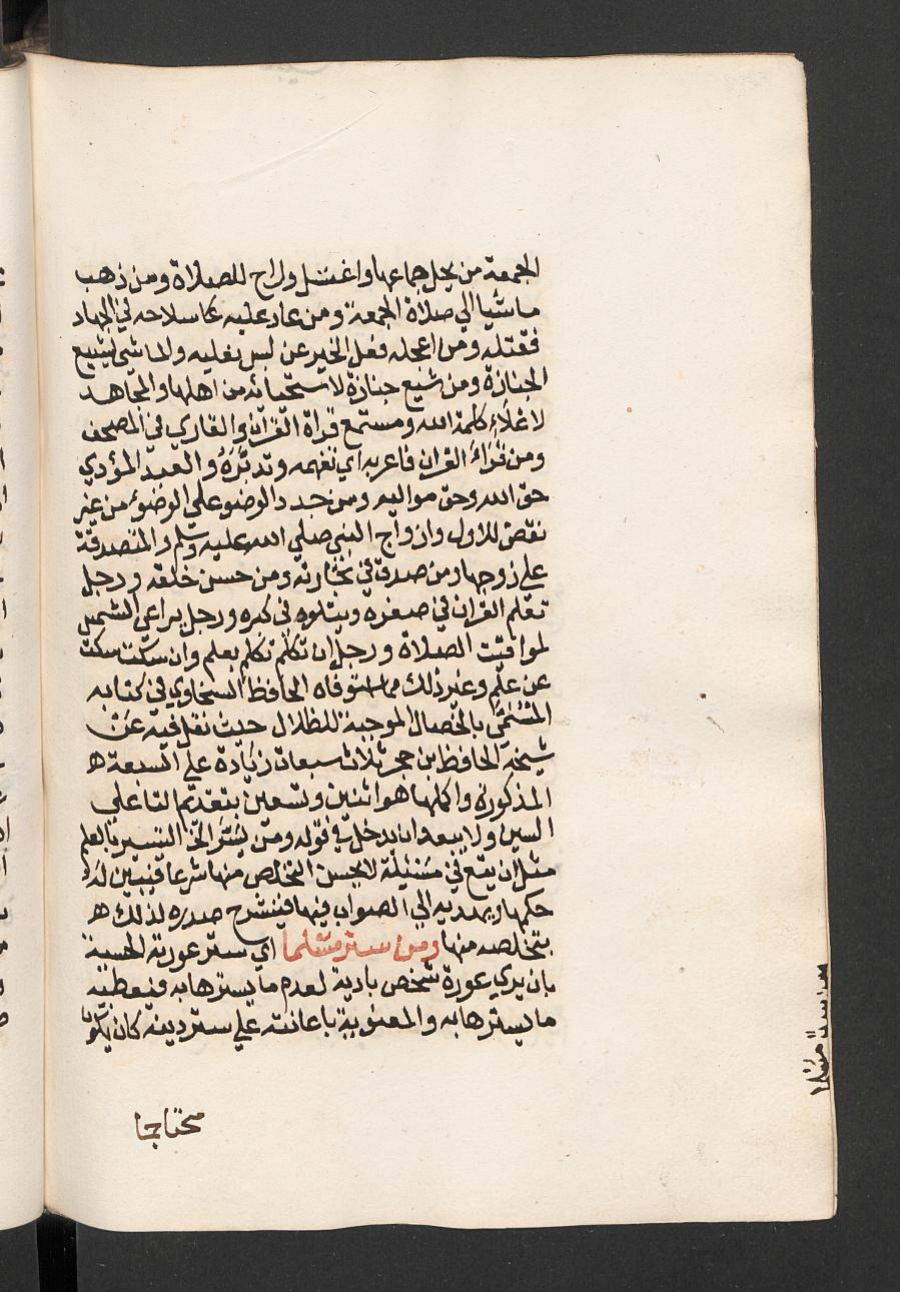 الجمعة من يحل جماعها واغتسل وراح للصلاة ومن ذهب
ماشيا الي صلاة الجمعة ومن عاد عليه سلاحه في الجهاد
فقتله ومن اعجله فعل الخير عن لبس نعليه والماشي لتشييع
الجنازة ومن شيع جنازة لاستحيائه من اهلها والمجاهد
لاعلاء كلمة الله ومستمع قراة القرآن والقاري في المصحف
ومن قراء القران فاعربه اي تفهمه وتدبّره والعبد المؤدي
حق الله وحق مواليه ومن جدد الوضو علي الوضوء من غير
نقض للاول وازواج النبي صلي الله عليه وسلم والمتصدقة
علي زوجها ومن صدق في تجارته ومن حسن خلقه ورجل
تعلم القران في صغره ويتلوه في كبره ورجل يراعي الشمس
لمواقيت الصلاة ورجل ان تكلم تكلم بعلم وان سكت سكت
عن علم وغير ذلك مما استوفاه الحافظ السخاوي في كتابه
المسمي بالخصال الموجبة للظلال حيث نقل فيه عن
شيخه الحافظ ابن حجر ثلاث سبعات زيادة علي السبعة ه
المذكورة واكملها هو اثنين وتسعين بتقديم التا علي
السين ولا يبعد ان يدخل في قوله ومن يسّر الخ التيسير بالعلم
مثل ان يقع في مسئلة لا يحسن التخلص منها شرعا فيبين له
حكمها ويهديه الي الصواب فيها فينشرح صدره لذلك ه
بتخلصه منها ومن ستر مسلما اي ستر عورته الحسية
بان يري عورة شخص بادية لعدم ما يسترها به فيعطيه
ما يسترها به والمعنوية باعانته علي ستر دينه كان يكون
محتاجا
ستر مسلما